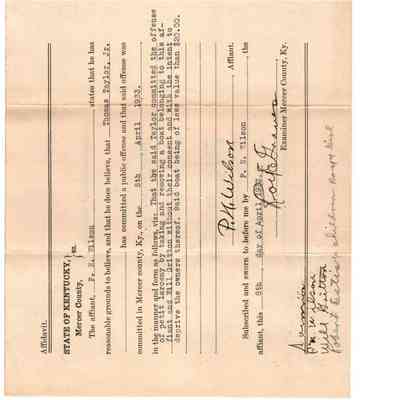 Affidavit.
STATE OF KENTUCKY,
Mercer County, } ss.
The affiant, P. N. Wilson states that he has
reasonable grounds to believe, and that he does believe, that Thomas Taylor, Jr.
has committed a public offense and that said offense was
committed in Mercer county, Ky., on the 8th April 1933,
in the manner and form as follows, viz: That the said Taylor committed the offense
of petit larceny by taking and removing a boat belonging to this af-
fiant and Will Britton without their consent and with the intent to
deprive the owners thereof. Said boat being of less value than $20.00.
P. N. Wilson Affiant.
Subscribed and sworn to before me by P. N. Wilson, the
affiant, this 8th day of April
Examiner Mercer County, Ky.
P N Wilson
Will Britton
Robert